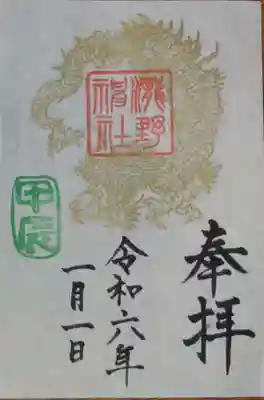 奉拝
神社
令和六年
一月一日
甲辰